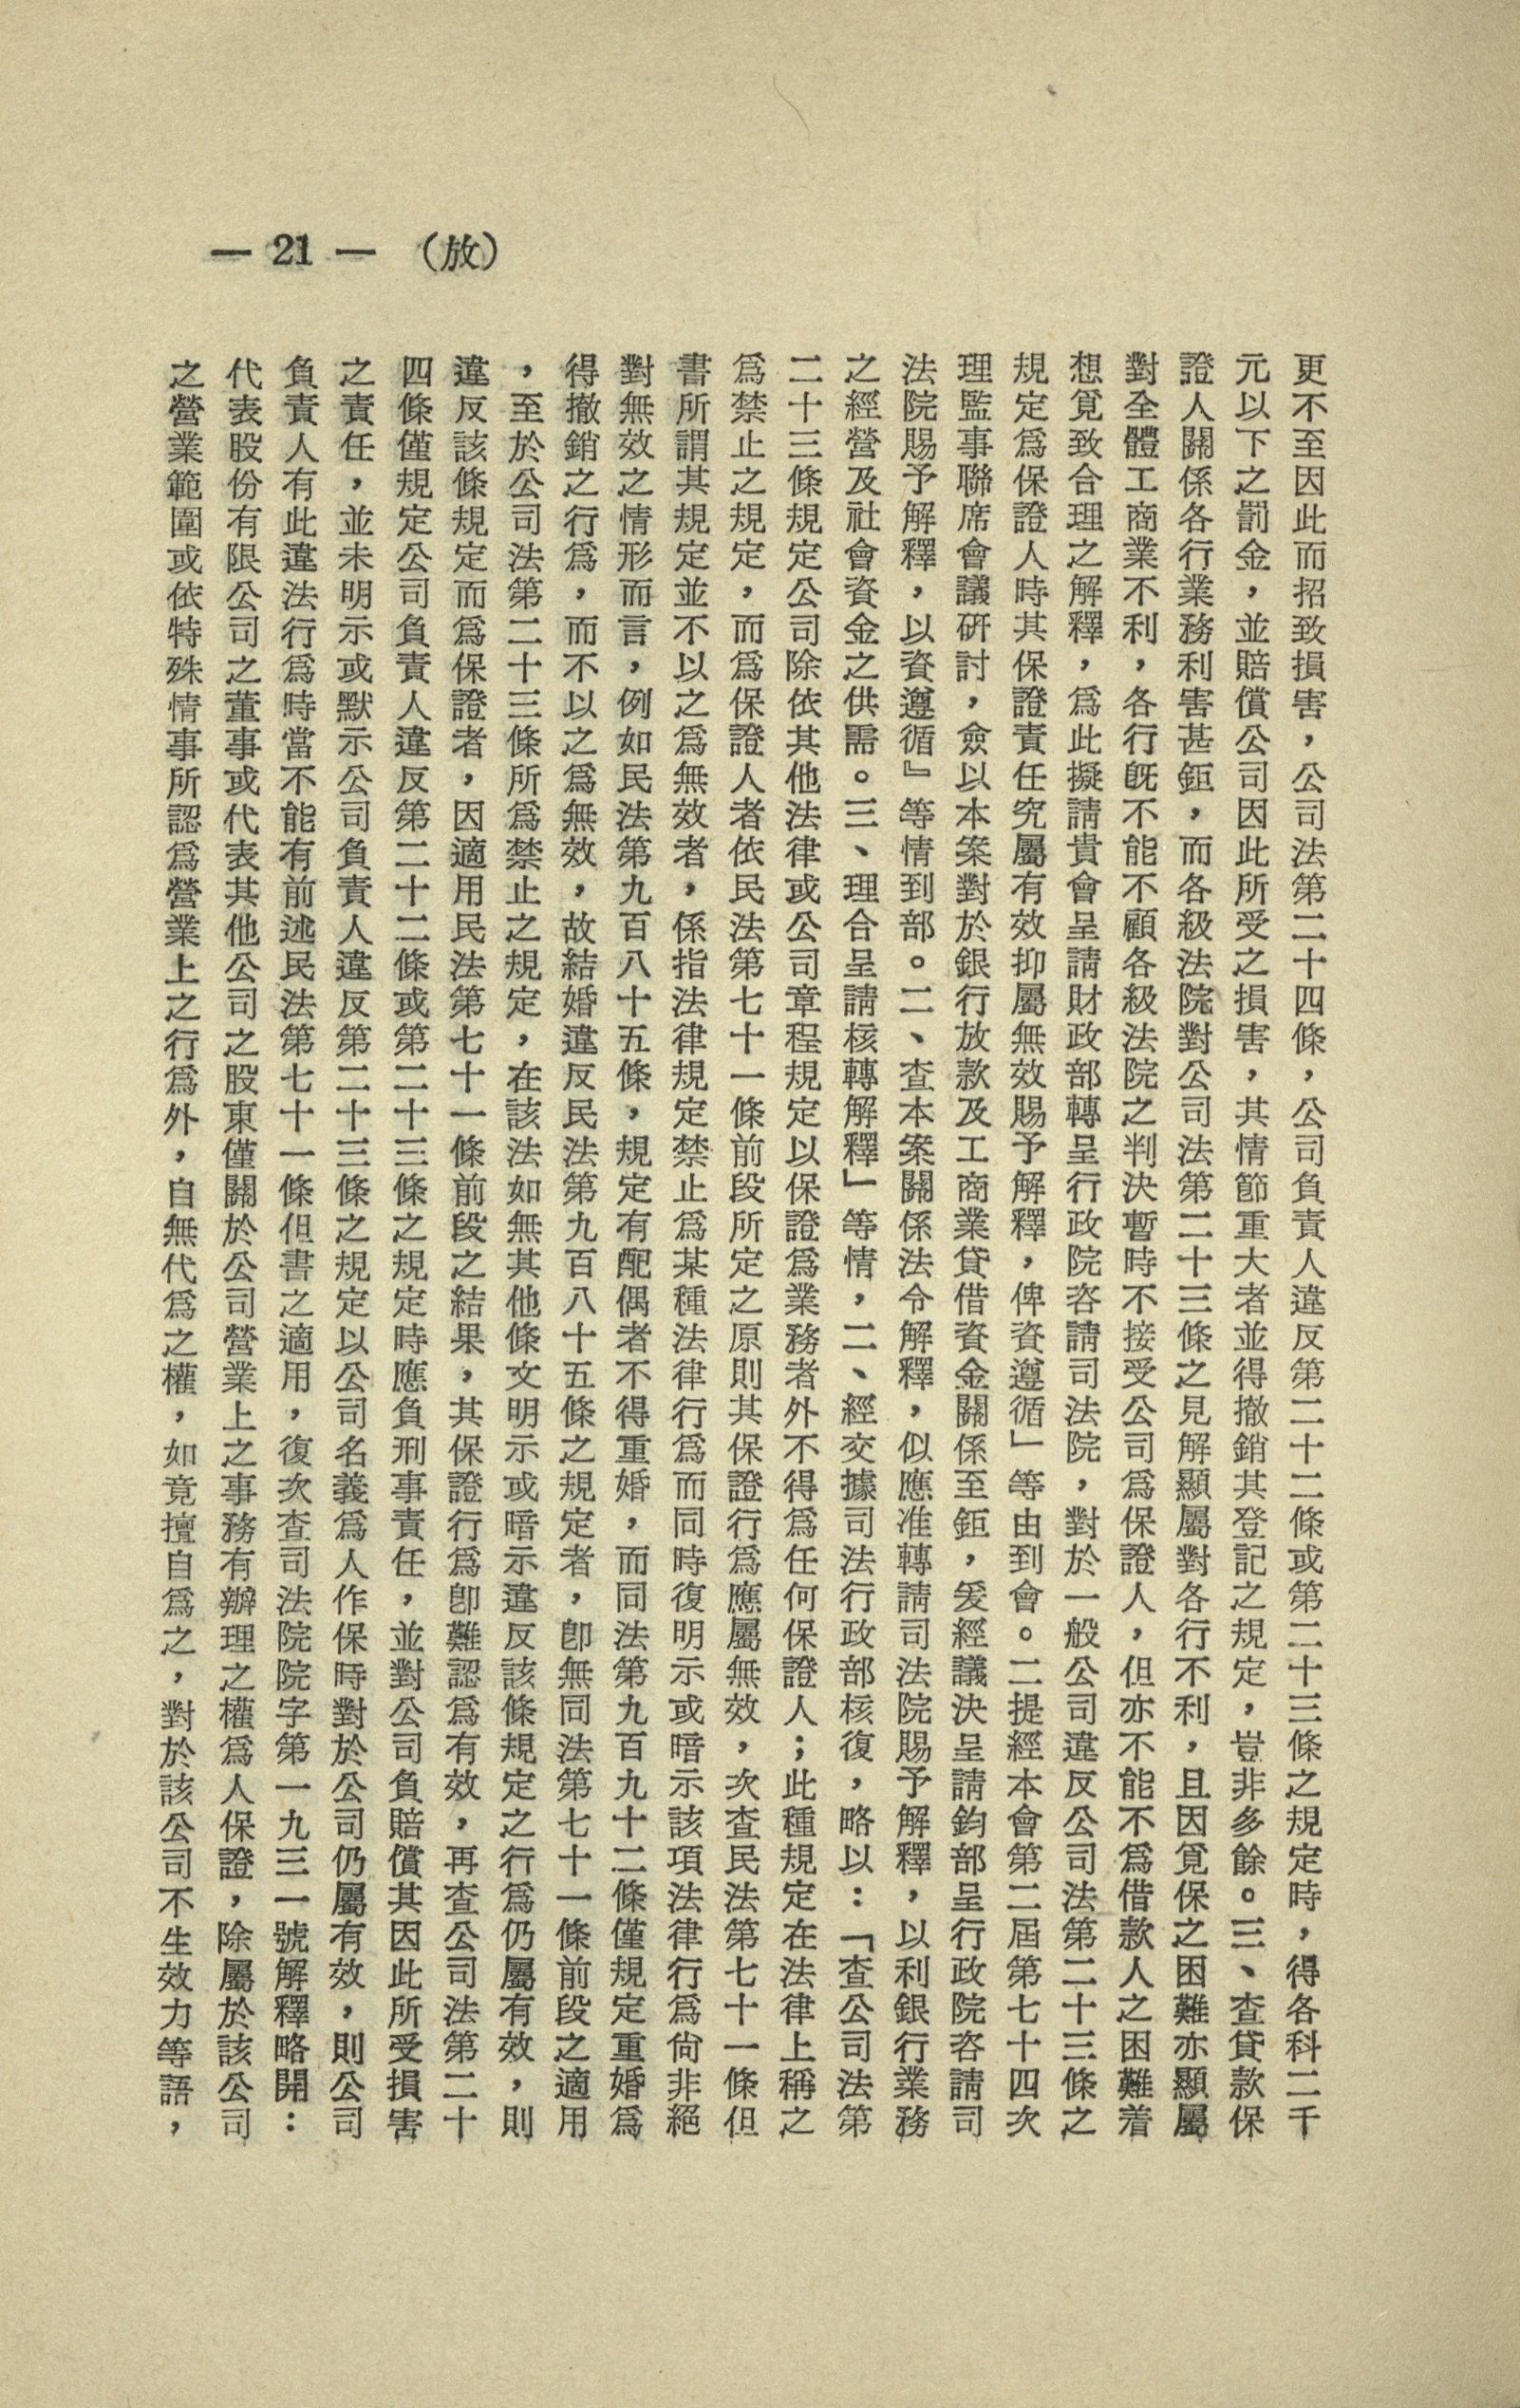 — 21 — （放）
更不至因此而招致損害，公司法第二十四條，公司負責人違反第二十二條或第二十三條之規定時，得各科二千
元以下之罰金，並賠償公司因此所受之損害，其情節重大者並得撤銷其登記之規定，豈非多餘。三、查貸款保
證人關係各行業務利害甚鉅，而各級法院對公司法第二十三條之見解顯屬對各行不利，且因覓保之困難亦顯屬
對全體工商業不利，各行旣不能不顧各級法院之判決暫時不接受公司爲保證人，但亦不能不爲借款人之困難着
想覓致合理之解釋，爲此擬請貴會呈請財政部轉呈行政院咨請司法院，對於一般公司違反公司法第二十三條之
規定爲保證人時其保證責任究屬有效抑屬無效賜予解釋，俾資遵循」等由到會。二提經本會第二屆第七十四次
理監事聯席會議研討，僉以本案對於銀行放款及工商業貸借資金關係至鉅，爰經議決呈請鈞部呈行政院咨請司
法院賜予解釋，以資遵循』等情到部。二、查本案關係法令解釋，似應准轉請司法院賜予解釋，以利銀行業務
之經營及社會資金之供需。三、理合呈請核轉解釋」等情，二、經交據司法行政部核復，略以：「查公司法第
二十三條規定公司除依其他法律或公司章程規定以保證爲業務者外不得爲任何保證人；此種規定在法律上稱之
爲禁止之規定，而爲保證人者依民法第七十一條前段所定之原則其保證行爲應屬無效，次查民法第七十一條但
書所謂其規定並不以之爲無效者，係指法律規定禁止爲某種法律行爲而同時復明示或暗示該項法律行爲尙非絕
對無效之情形而言，例如民法第九百八十五條，規定有配偶者不得重婚，而同法第九百九十二條僅規定重婚爲
得撤銷之行爲，而不以之爲無效，故結婚違反民法第九百八十五條之規定者，卽無同法第七十一條前段之適用
，至於公司法第二十三條所爲禁止之規定，在該法如無其他條文明示或暗示違反該條規定之行爲仍屬有效，則
違反該條規定而爲保證者，因適用民法第七十一條前段之結果，其保證行爲卽難認爲有效，再查公司法第二十
四條僅規定公司負責人違反第二十二條或第二十三條之規定時應負刑事責任，並對公司負賠償其因此所受損害
之責任，並未明示或默示公司負責人違反第二十三條之規定以公司名義爲人作保時對於公司仍屬有效，則公司
負責人有此違法行爲時當不能有前述民法第七十一條但書之適用，復次查司法院院字第一九三一號解釋略開：
代表股份有限公司之董事或代表其他公司之股東僅關於公司營業上之事務有辦理之權爲人保證，除屬於該公司
之營業範圍或依特殊情事所認爲營業上之行爲外，自無代爲之權，如竟擅自爲之，對於該公司不生效力等語，